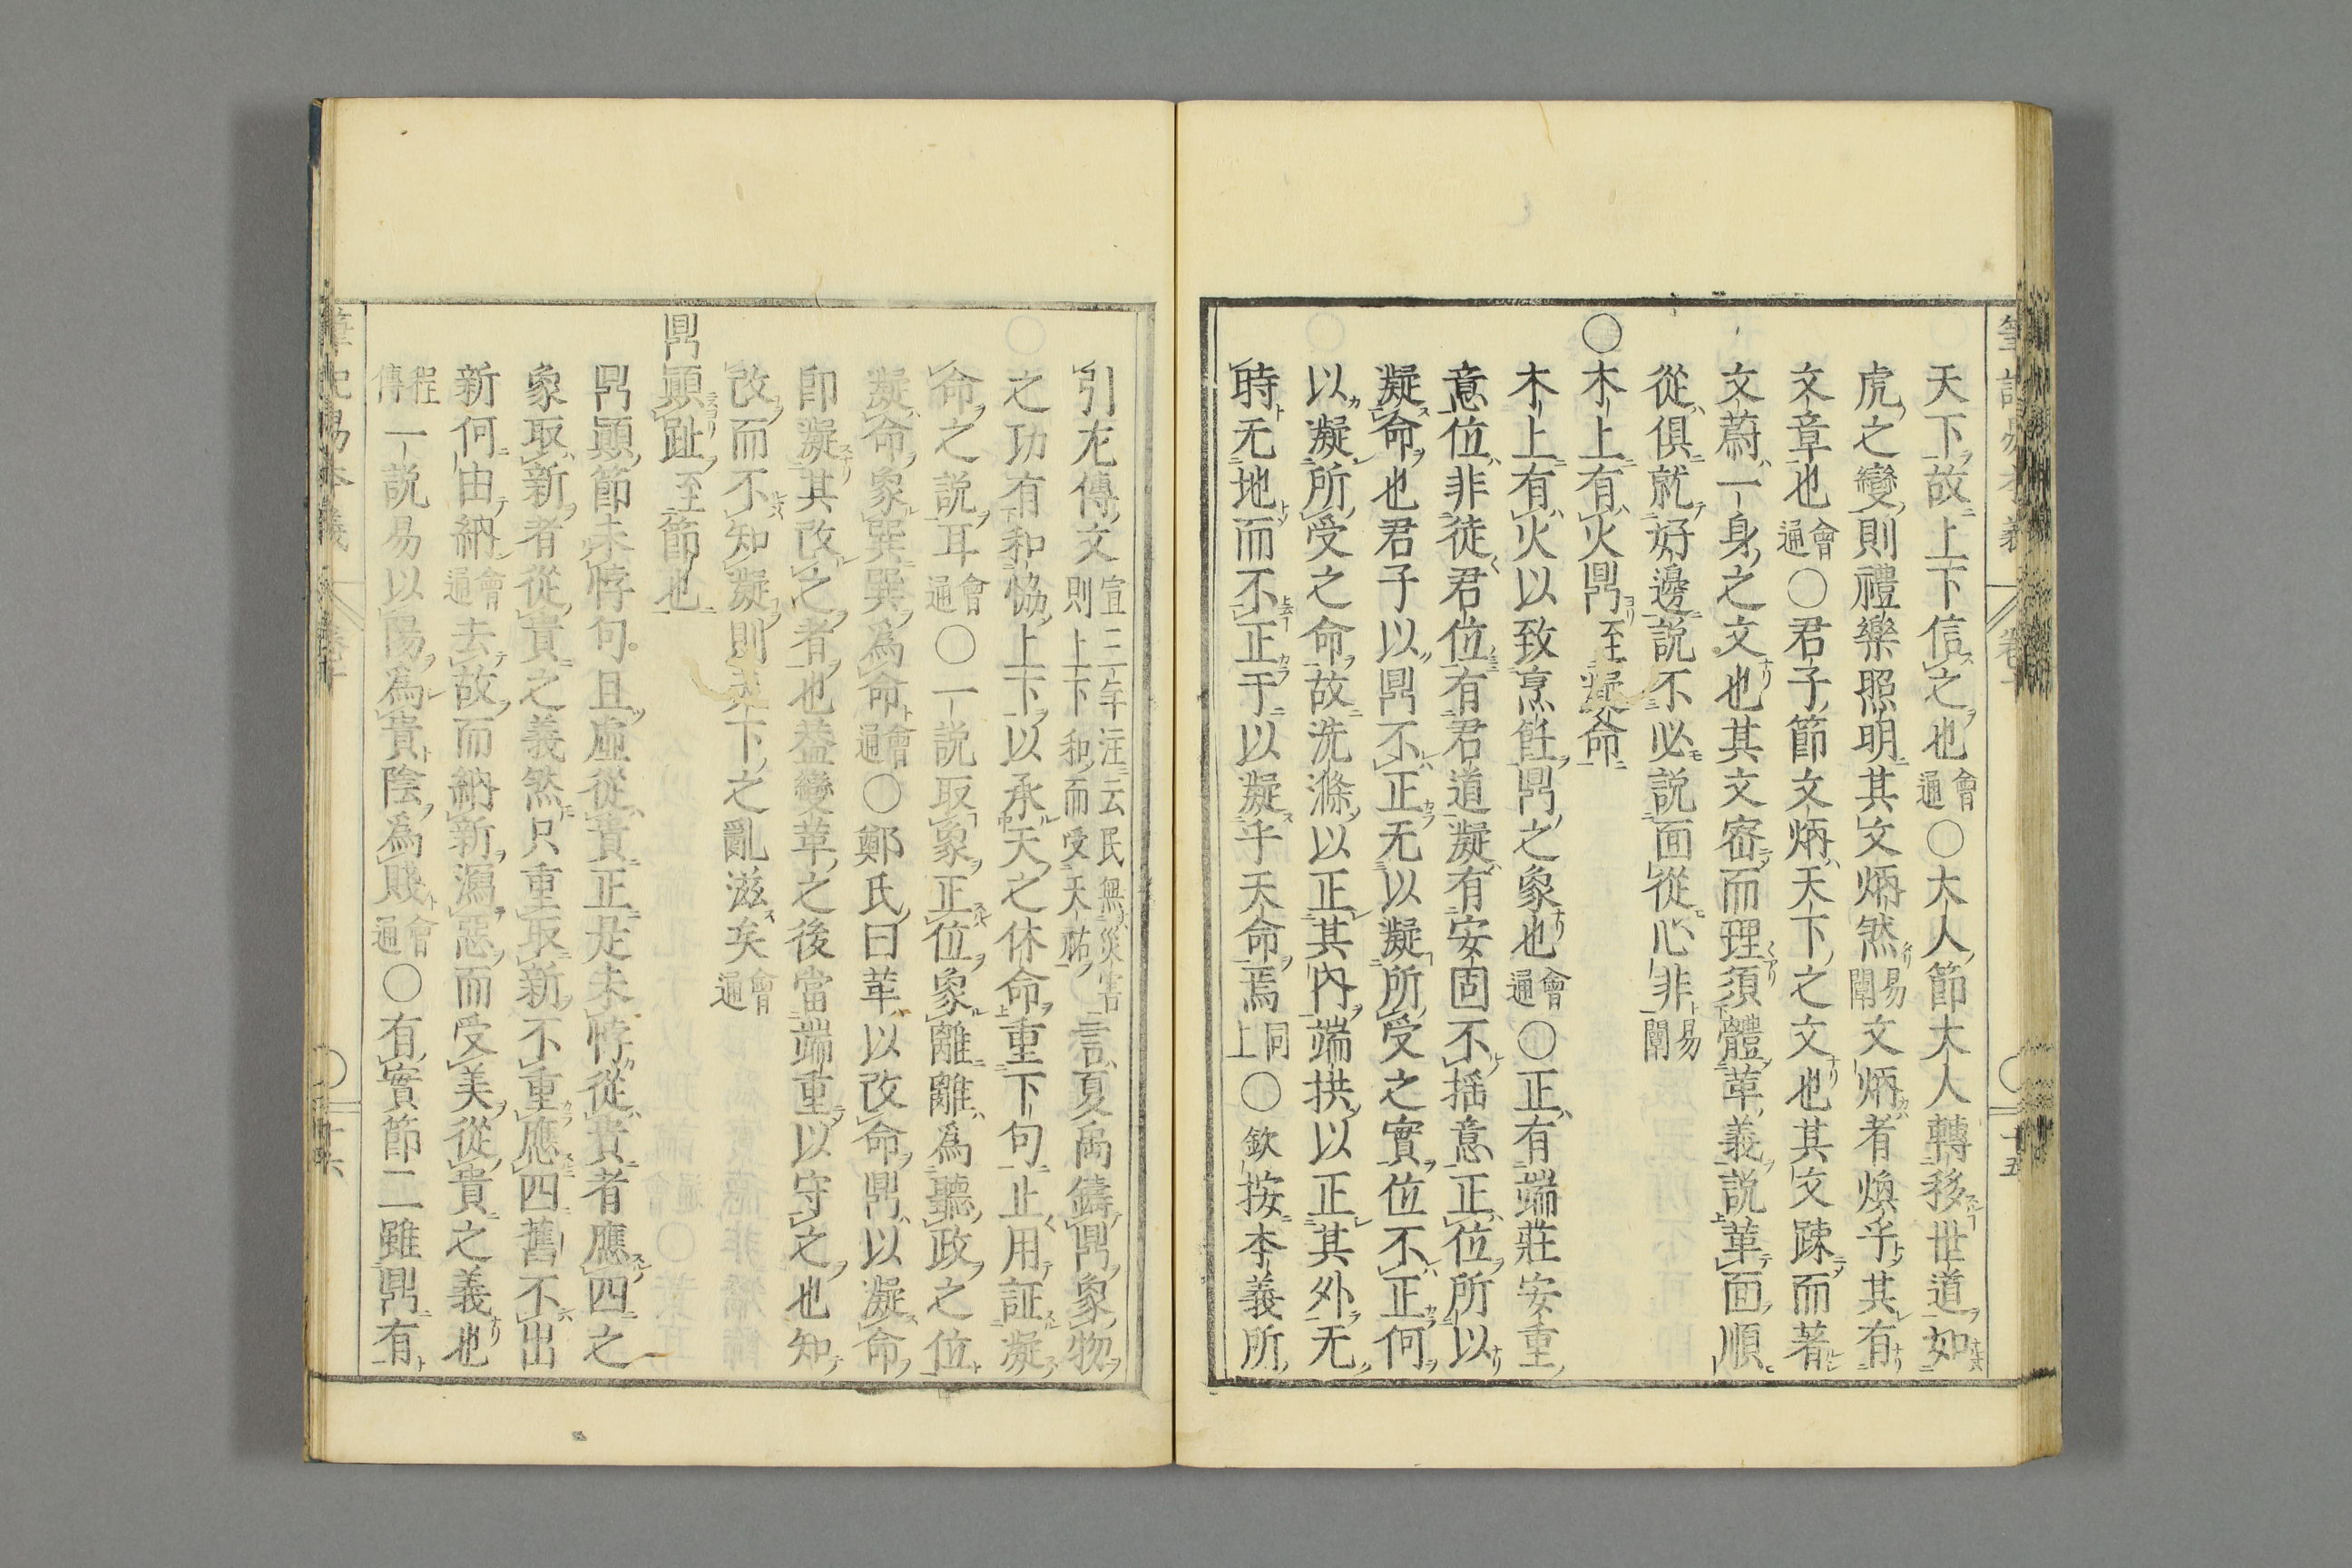 天下故上下信之也會通〇大人節大人轉移世道如
虎之變則禮樂照明其文炳然易闡文炳者煥乎其有
文章也會通〇君子節文炳天下之文也其文踈而著
文蔚一身之文也其文宻而理須體革義説革面順
從俱就好邊説不必説面從心非易闡
〇木上有火鼎至凝命
木上有火以致烹飪鼎之象也會通〇正有端莊安重
意位非徒君位有君道凝有安固不揺意正位所以
凝命也君子以鼎不正无以凝所受之實位不正何
以凝所受之命故洗滌以正其内端拱以正其外无
時无地而不正于以凝乎天命焉同上〇欽按本義所
引左傳文宣三年注云民無災害則上下和而受天祐言夏禹鑄鼎象物
之功有和恊上下以承天之休命重下句止用証凝
命之説耳會通〇一説取象正位象離離爲聽政之位
凝命象巽巽爲命會通〇鄭氏曰革以改命鼎以凝命
即凝其改之者也葢變革之後當端重以守之也知
改而不知凝則天下之亂滋矣會通
鼎顛趾至節也
鼎顛節未悖句且虚從貴正是未悖從貴者應四之
象取新者從貴之義然只重取新不重應四舊不出
新何由納會通去故而納新瀉惡而受美從貴之義也
程傳一説易以陽爲貴陰爲賤會通〇有實節二雖鼎有
筆記易本義
十五
十六